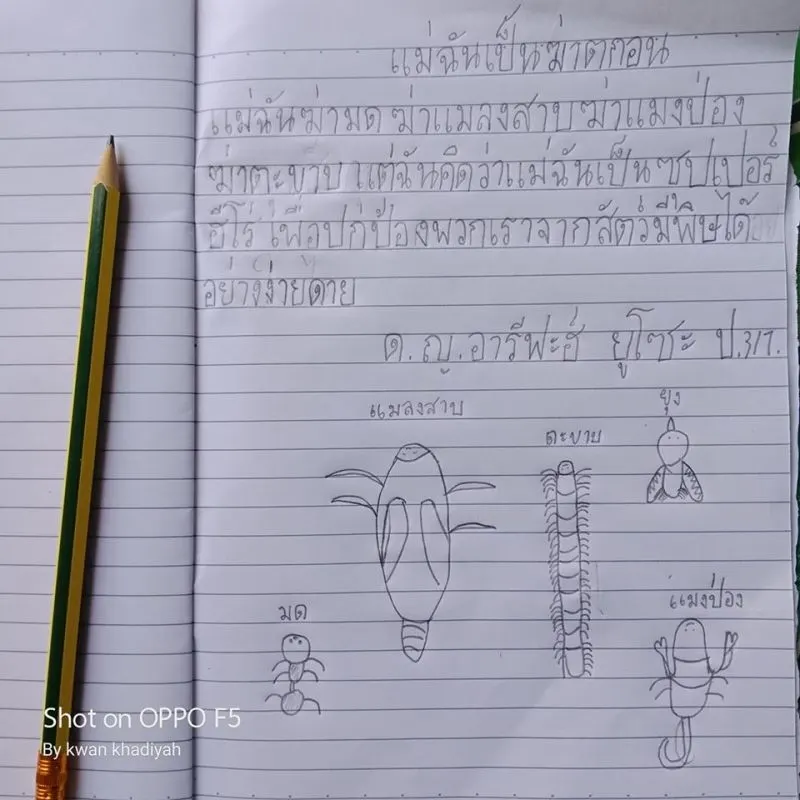 แม่ฉันเป็นฆ่าตกอน
แม่ฉันฆ่ามด ฆ่าแมลงสาบ ฆ่าแมงป่อง
ฆ่าตะขาบ แต่ฉันคิดว่าแม่ฉันเป็นซุปเปอร์
ฮีโร่ เพื่อปกป้องพวกเราจากสัตว์มีพิษได้
อย่างง่ายดาย
ด.ญ.อารีฟะฮ์ ยูโซะ ป.3/1.
แมลงสาบ
ยุง
ตะขาบ
แมงป่อง
มด
Shot on OPPO F5
By kwan khadiyah